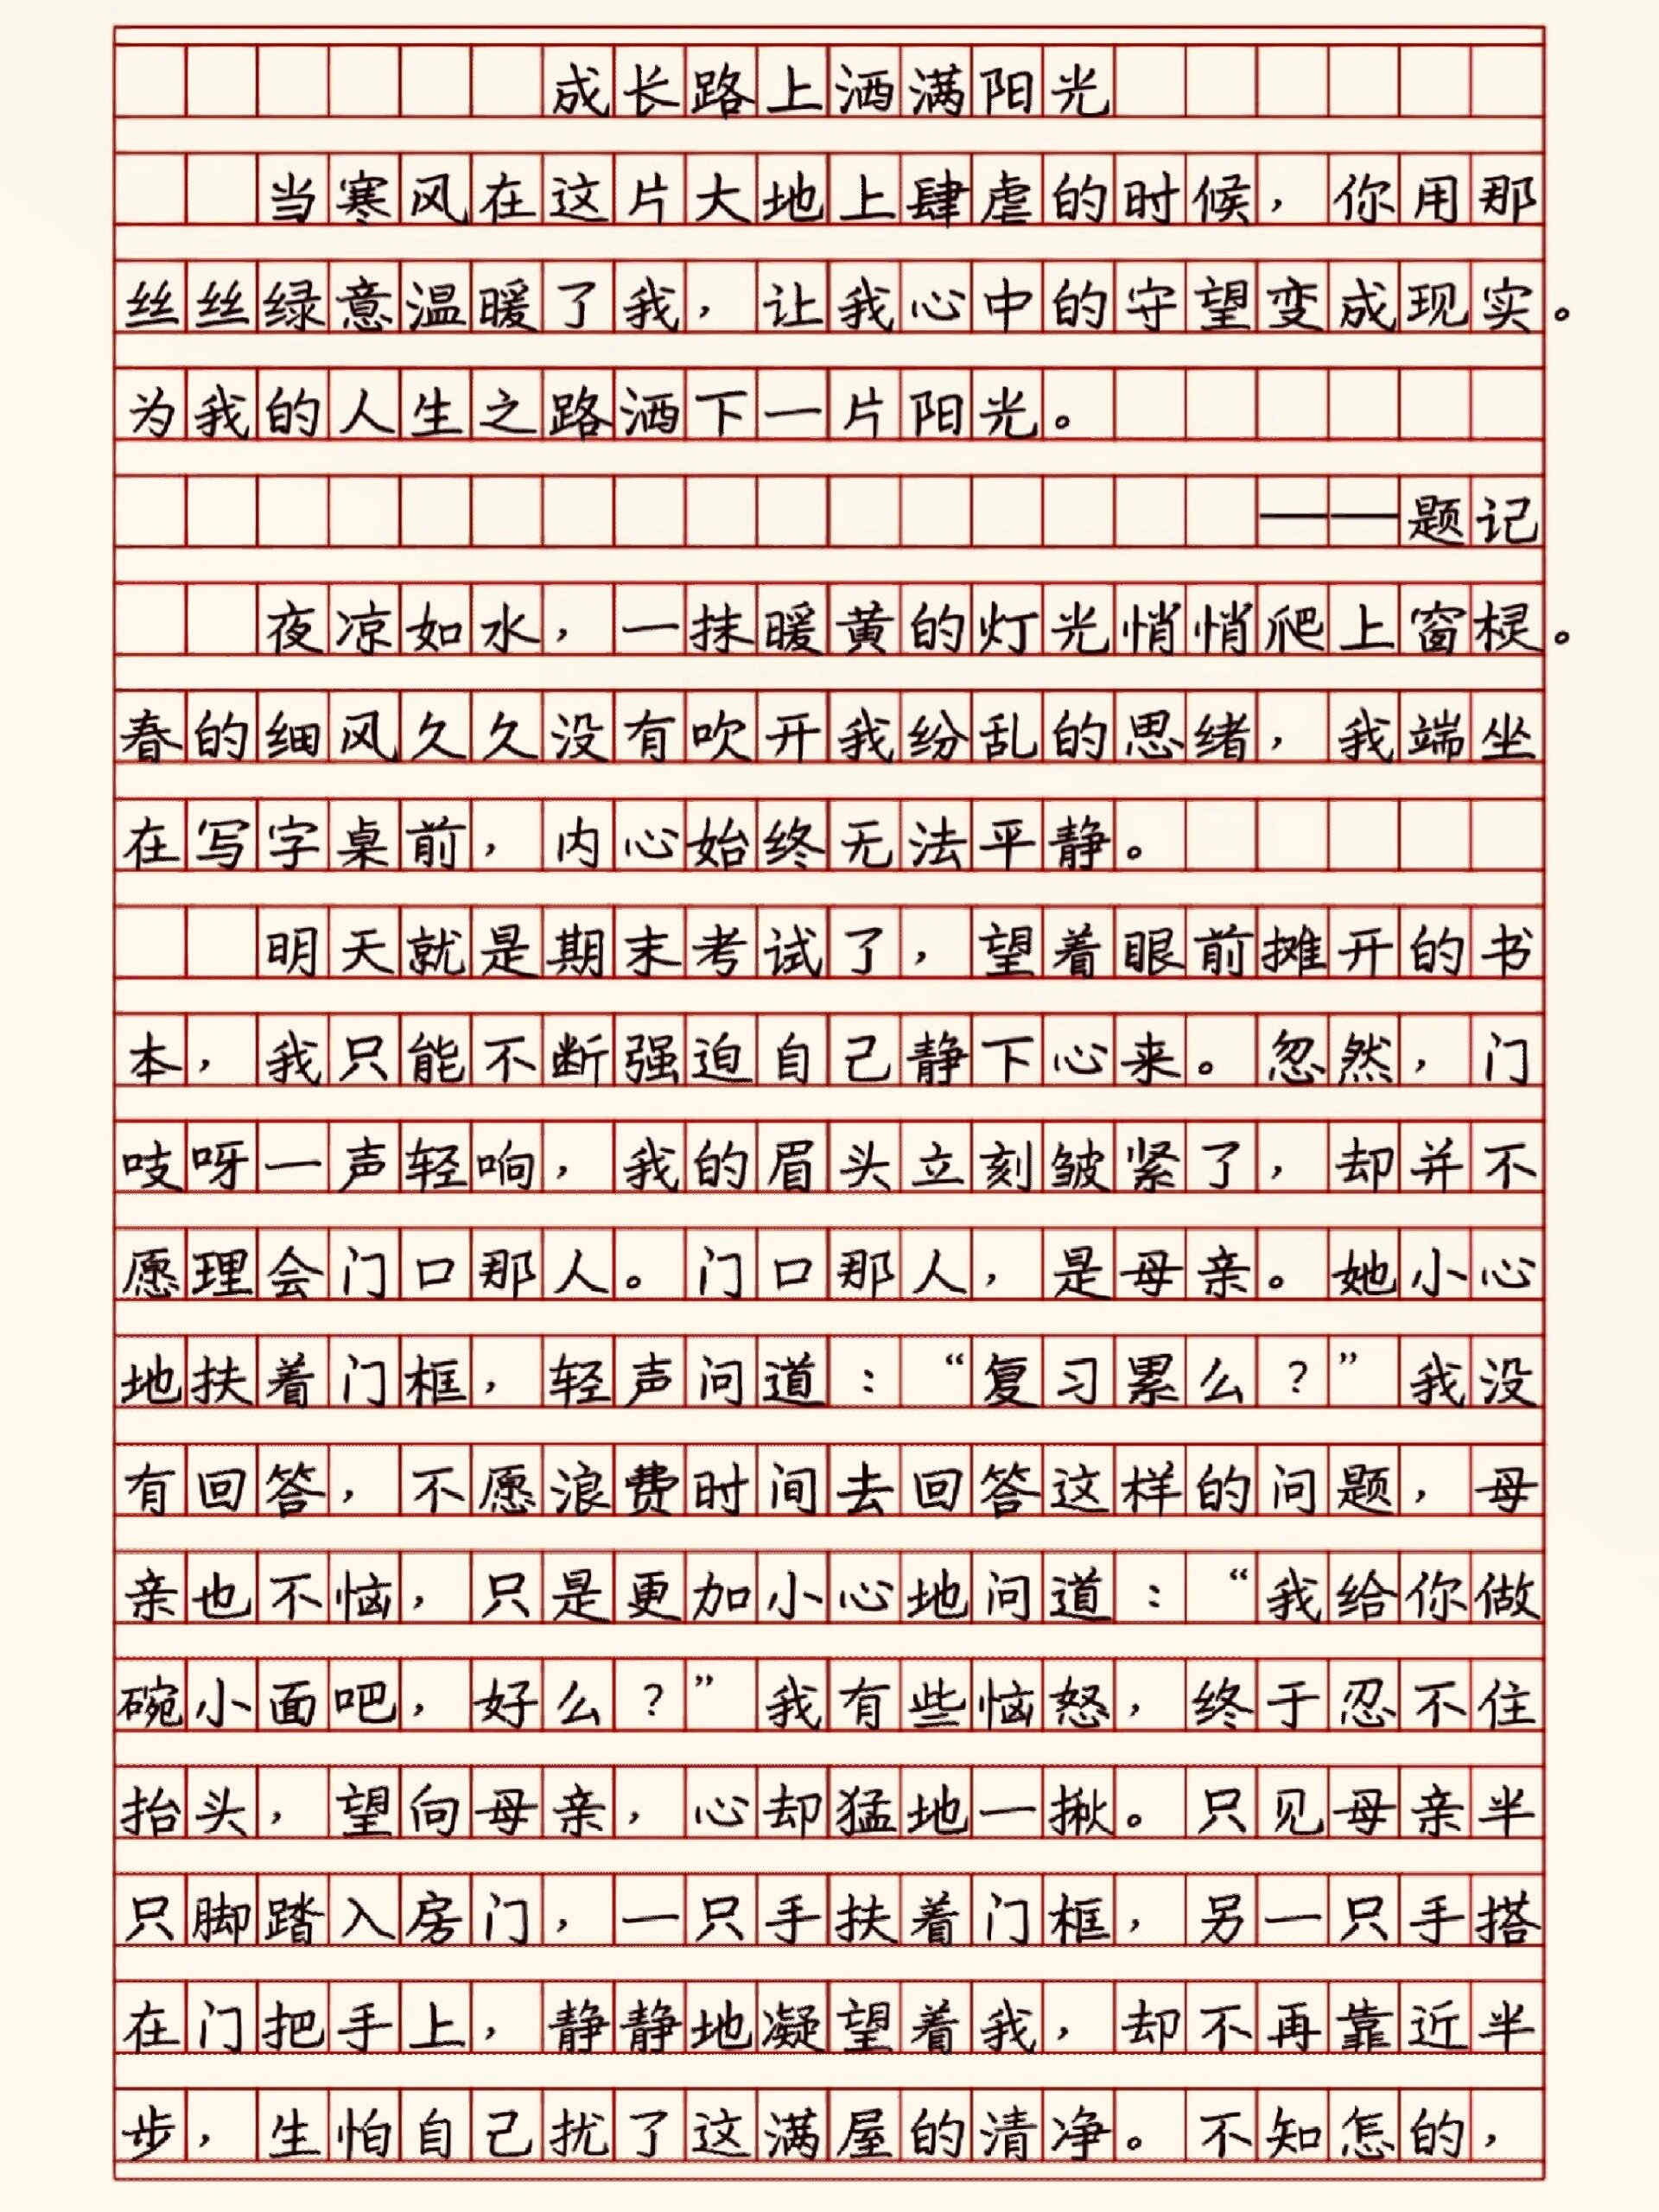 成长路上洒满阳光
当寒风在这片大地上肆虐的时候，你用那
丝丝绿意温暖了我，让我心中的守望变成现实。
为我的人生之路洒下一片阳光。
——题记
夜凉如水，一抹暖黄的灯光悄悄爬上窗棂。
春的细风久久没有吹开我纷乱的思绪，我端坐
在写字桌前，内心始终无法平静。
明天就是期末考试了，望着眼前摊开的书
本，我只能不断强迫自己静下心来。忽然，门
吱呀一声轻响，我的眉头立刻皱紧了，却并不
愿理会门口那人。门口那人，是母亲。她小心
地扶着门框，轻声问道：“复习累么？”我没
有回答，不愿浪费时间去回答这样的问题，母
亲也不恼，只是更加小心地问道：“我给你做
碗小面吧，好么？”我有些恼怒，终于忍不住
抬头，望向母亲，心却猛地一揪。只见母亲半
只脚踏入房门，一只手扶着门框，另一只手搭
在门把手上，静静地凝望着我，却不再靠近半
步，生怕自己扰了这满屋的清净。不知怎的，